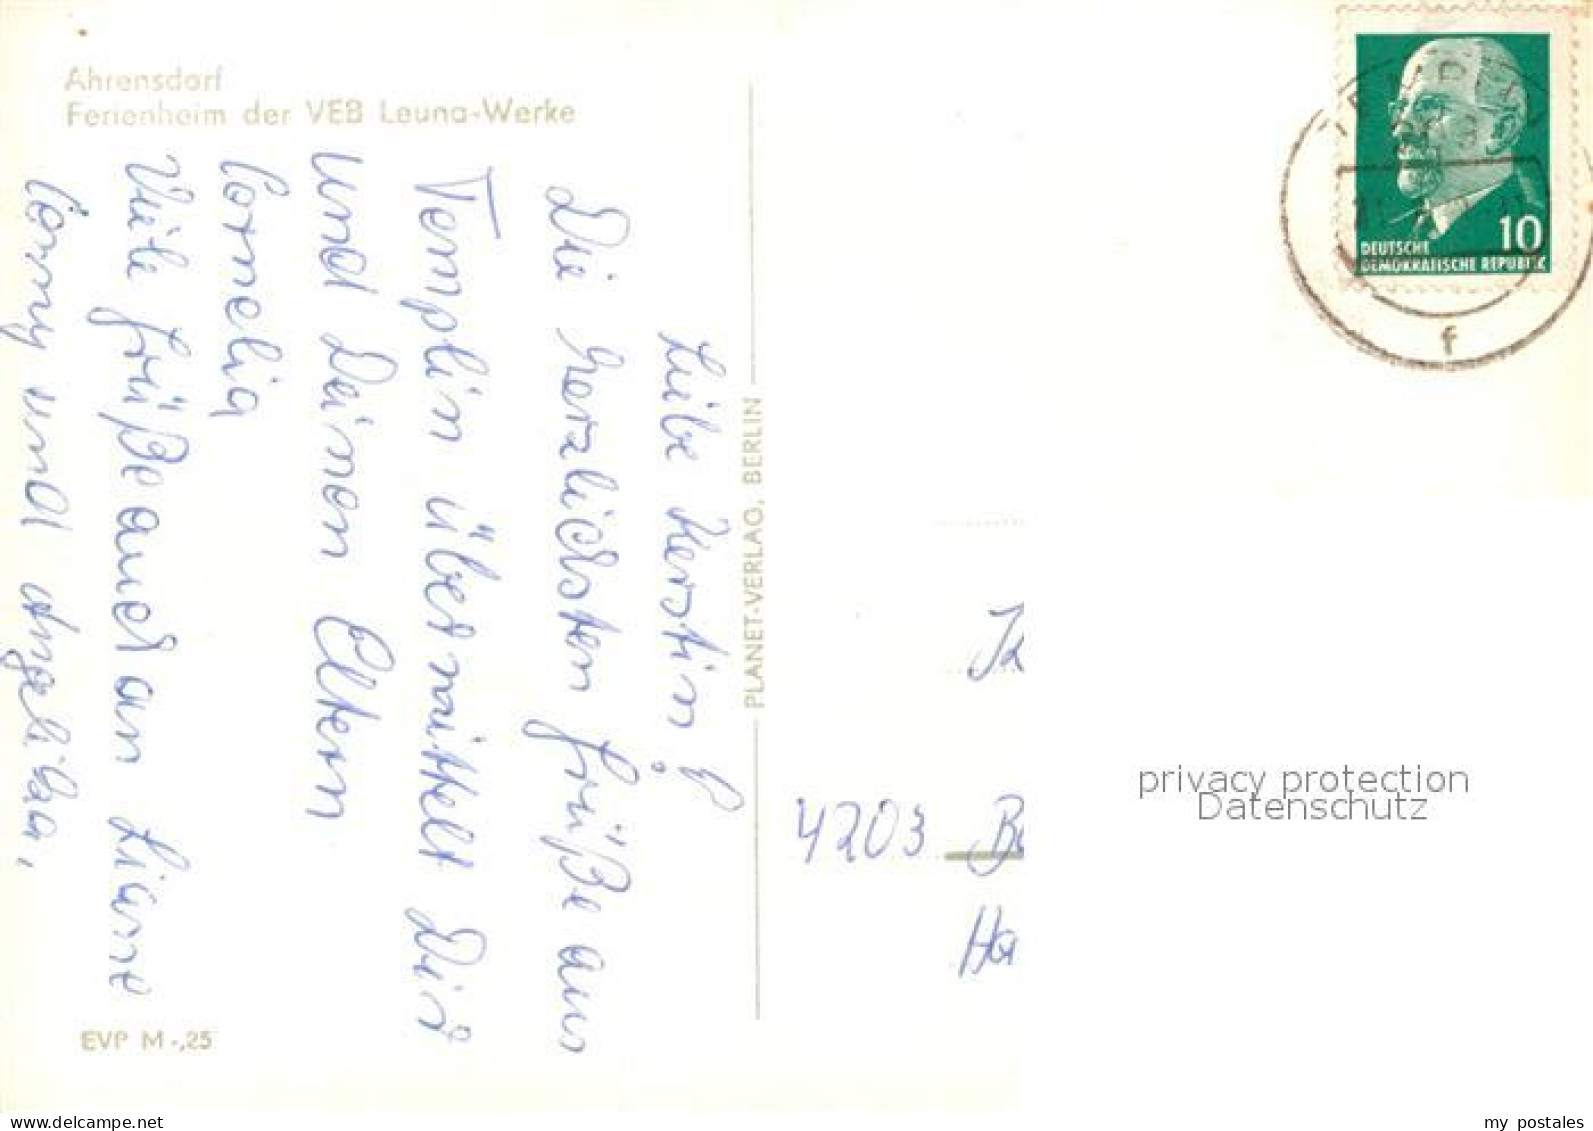 Ahrensdorf
Ferienheim der VEB Leuna-Werke
Liebe Kerstin!
Die herzlichsten Grüße aus
Templin übermittelt Dir
und Deinen Eltern
Cornelia
Viele Grüße auch an Liane
Conny und Angelika,
EVP M -,25
PLANET-VERLAG, BERLIN
10
DEUTSCHE
DEMOKRATISCHE REPUBLIK
TEMPLIN
f
4203
privacy protection
Datenschutz
my postales
www.delcampe.net